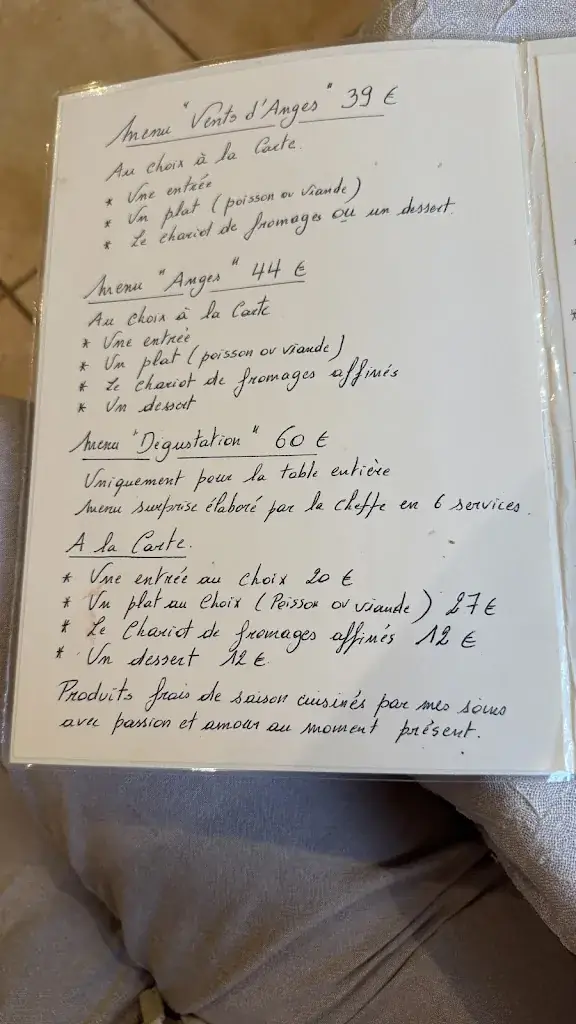 Menu "Vents d'Anges" 39 €
Au choix à la Carte.
* Une entrée
* Un plat (poisson ou viande)
* Le chariot de fromages ou un dessert.
Menu "Anges" 44 €
Au choix à la Carte
* Une entrée
* Un plat (poisson ou viande)
* Le chariot de fromages affinés
* Un dessert
Menu "Dégustation" 60 €
Uniquement pour la table entière
Menu surprise élaboré par la cheffe en 6 services.
A la Carte.
* Une entrée au choix 20 €
* Un plat au choix (Poisson ou viande) 27 €
* Le Chariot de fromages affinés 12 €
* Un dessert 12 €.
Produits frais de saison cuisinés par mes soins
avec passion et amour au moment présent.